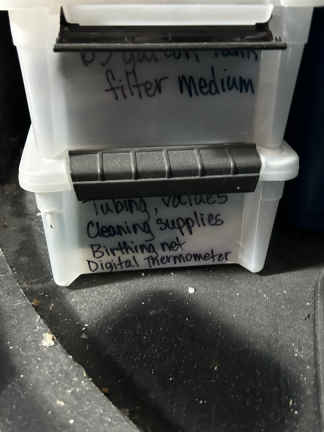 gallon tank
filter medium
Tubing, valves
Cleaning supplies
Birthing net
Digital Thermometer